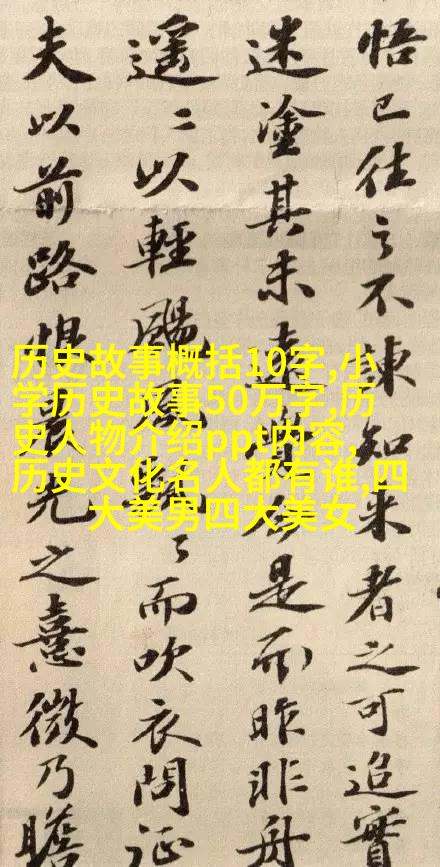 悟已往之不諫知来者之可追實
迷塗其未遠覺今是而昨非舟
遥々以輕颺風飄々而吹衣問征
夫以前路恨晨光之熹微乃瞻
历史故事概括10字,小
学历史故事50万字,历
史人物介绍ppt内容,
历史文化名人都有谁,四
大美男四大美女